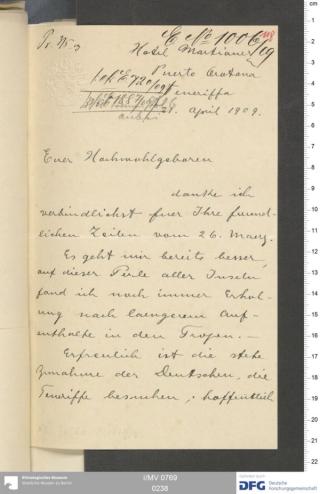 E No 1006/09
Hotel Martianez
Puerto Orotava
Teneriffa
21. April 1909.
Euer Hochwohlgeboren
danke ich
verbindlichst fuer Ihre freund-
lichen Zeilen vom 26. Maerz.
Es geht mir bereits besser,
auf dieser Perle aller Inseln
fand ich noch immer Erhol-
ung nach laengerem Auf-
enthalte in den Tropen. —
Erfreulich ist die stete
Zunahme der Deutschen, die
Teneriffe besuchen, hoffentlich
Ethnologisches Museum
Staatliche Museen zu Berlin
I/MV 0769
0238
DFG Deutsche
Forschungsgemeinschaft
cm
1
2
3
4
5
6
7
8
9
10
11
12
13
14
15
16
17
18
19
20
21
22